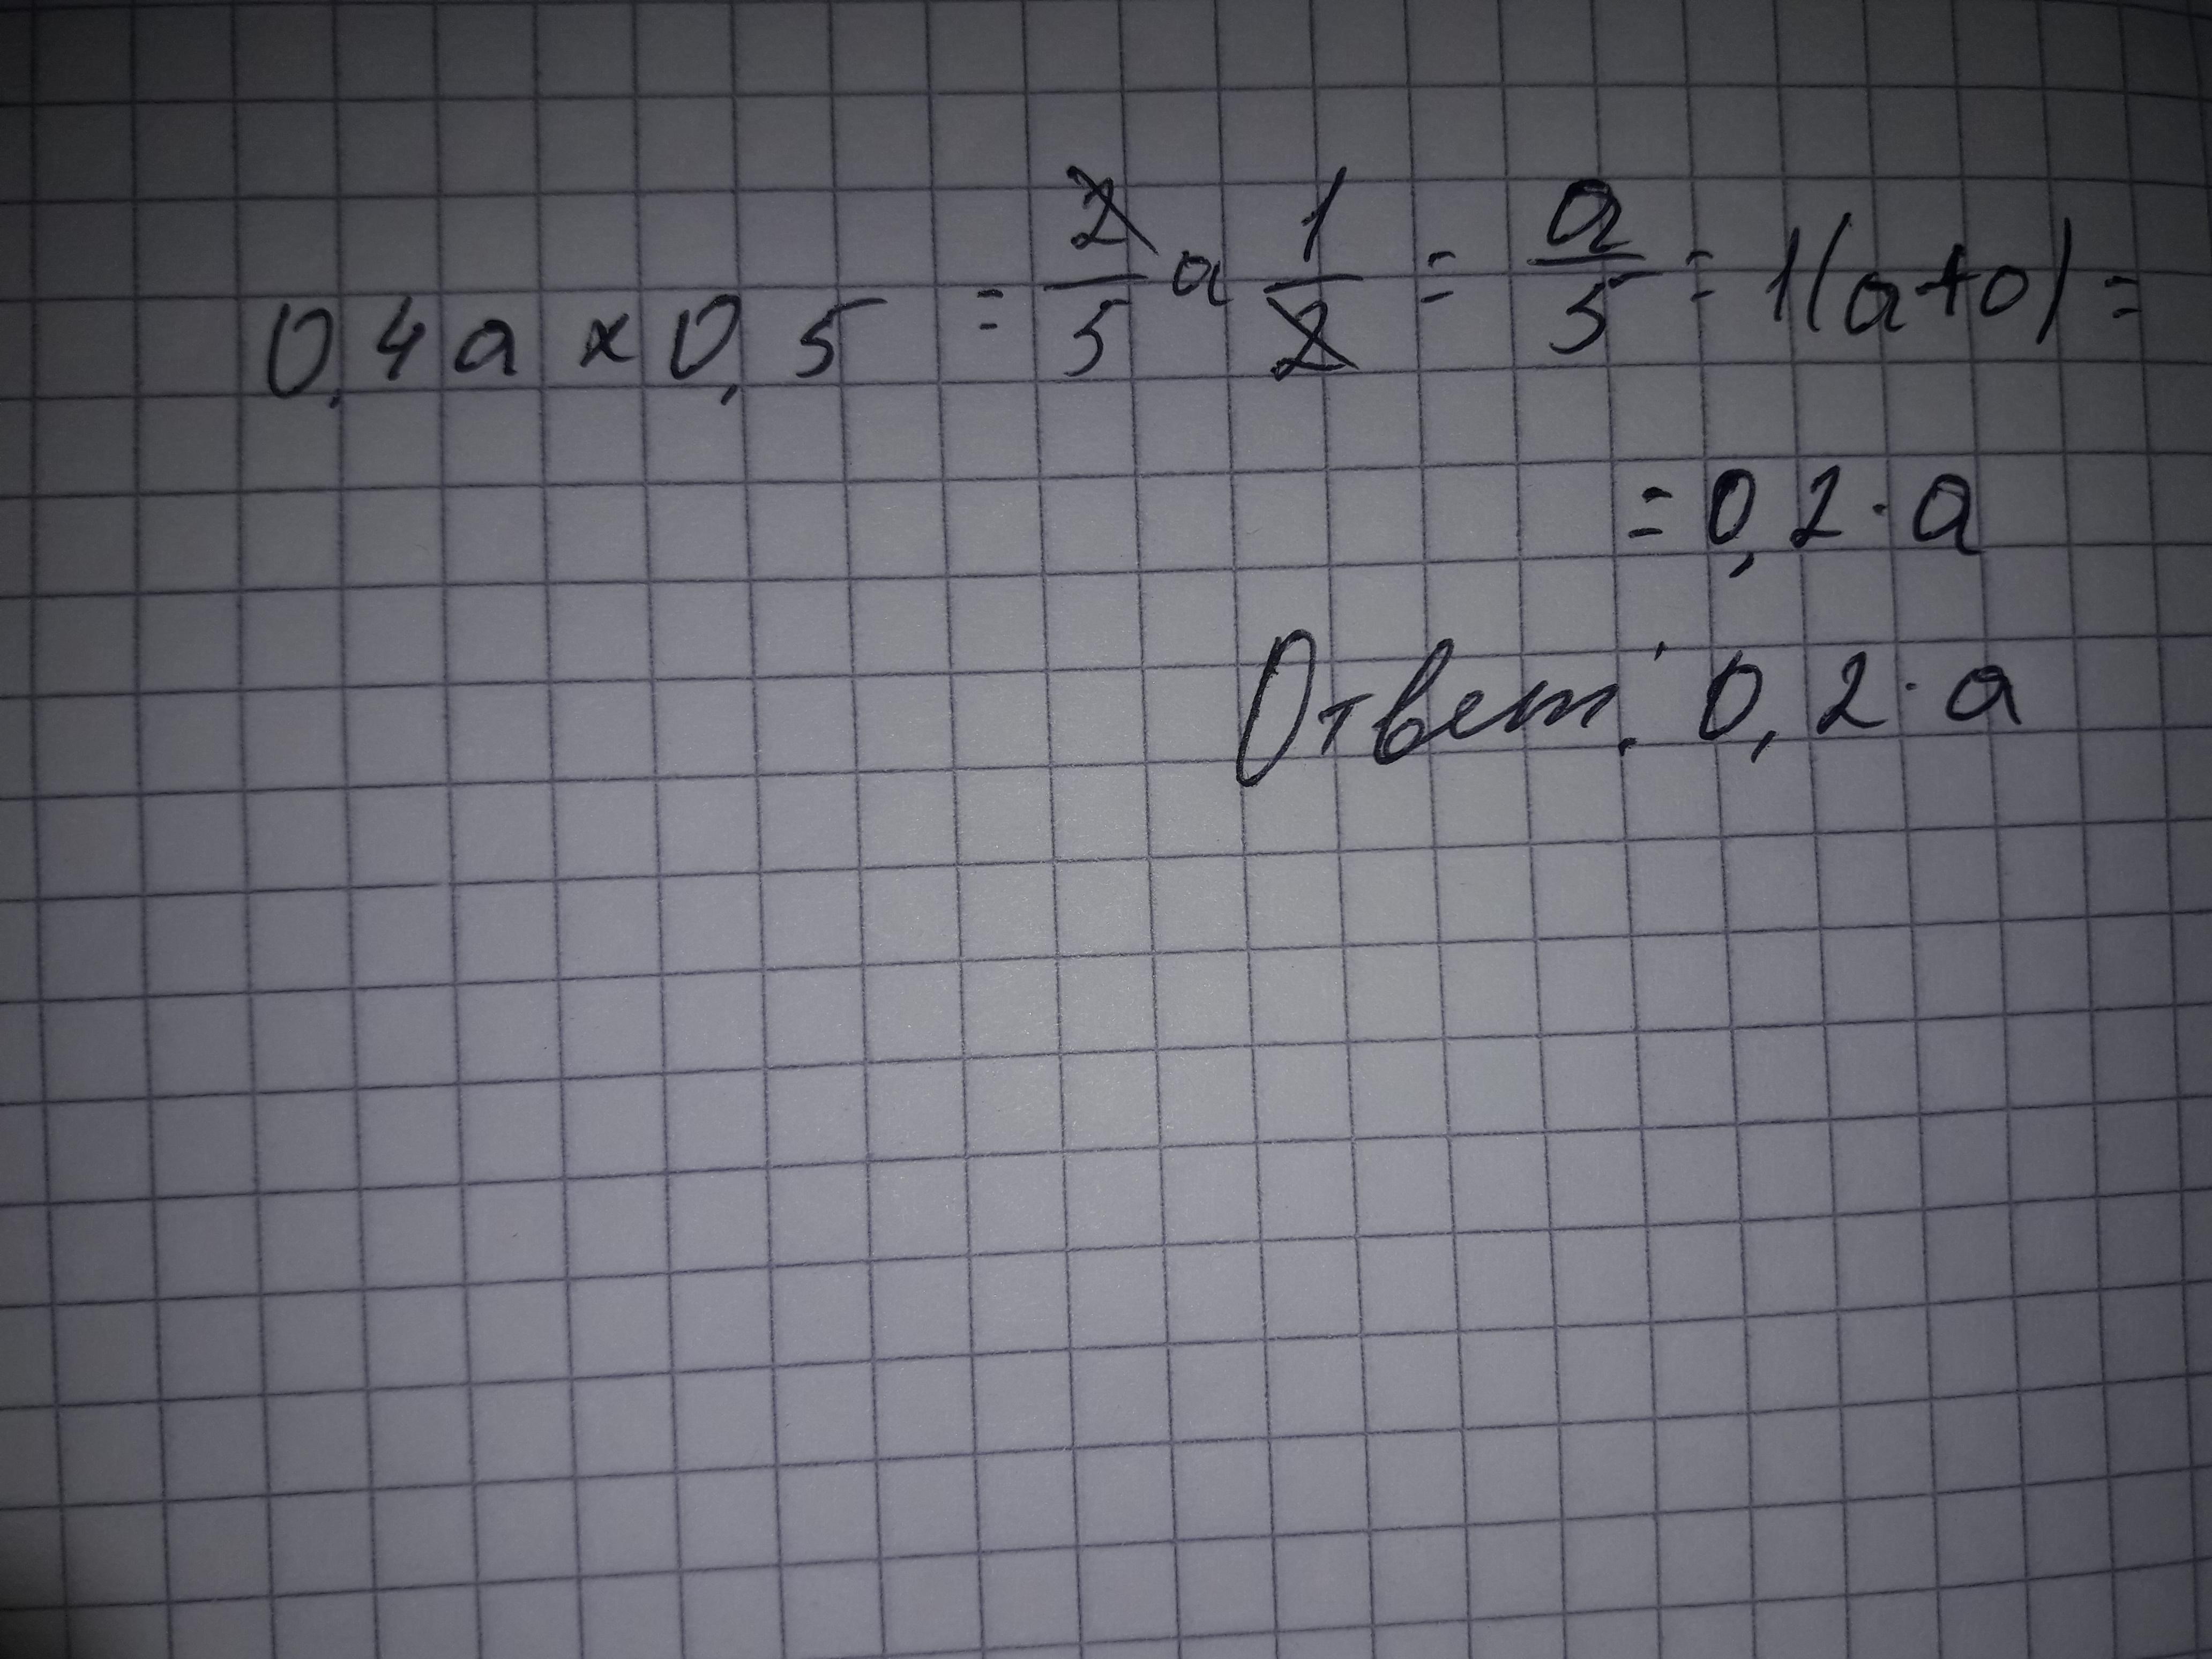 0,4a x 0,5 = 2/5 a 1/2 = a/5 = 1(a+0) =
= 0,2 · a
Ответ: 0,2 · a